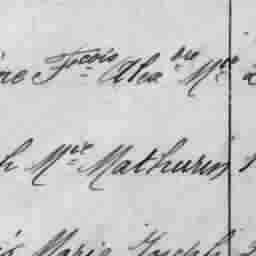 ne Fçois Alexdre Mie
h Mie Mathurin
is Marie Joseph